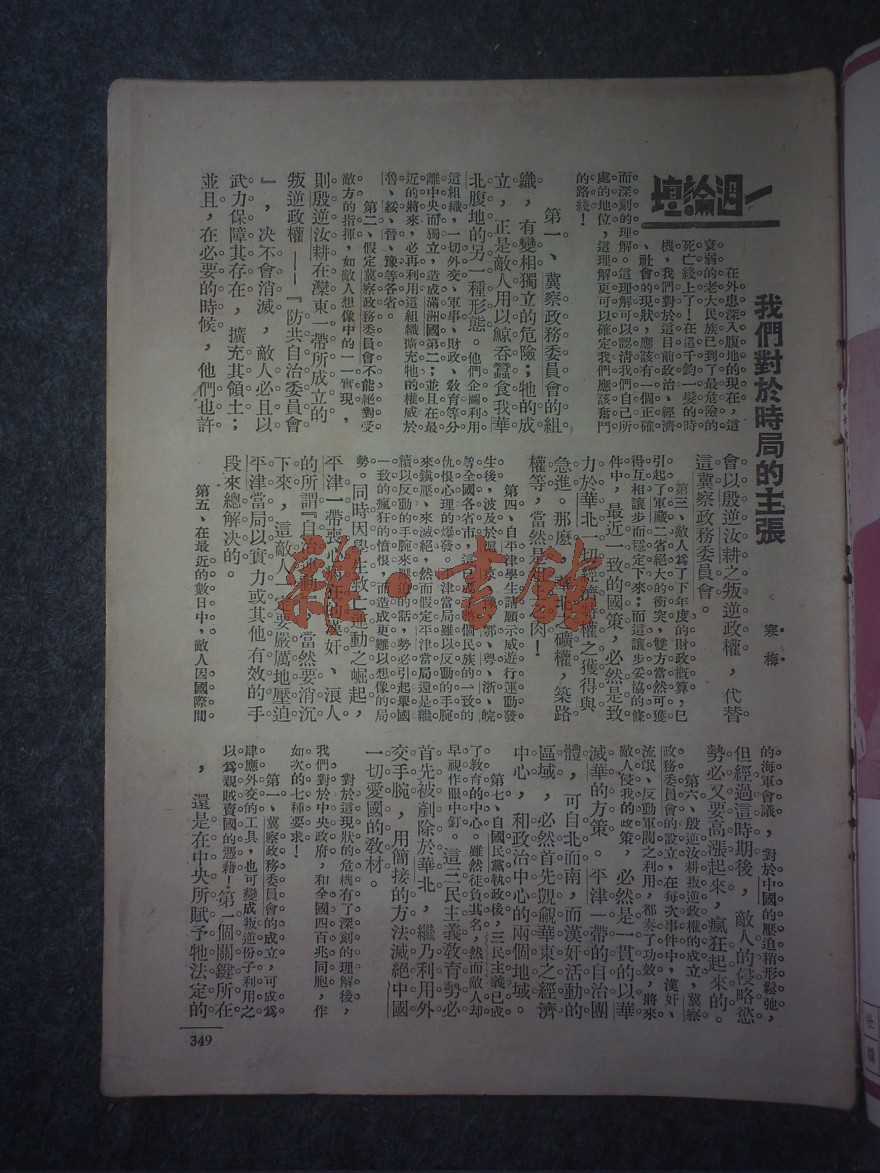 一週論壇
我們對於時局的主張
寒梅
在外患深入腹地的現在，這
衰弱的老大民族已到了最危險的
死亡綫上了！在這千鈞一髮的時
機，我們對於這目前政治、經濟
、社會的現狀，應該有一個正確
而深刻的理解。這理解可以認清我們自己所
處的地位，這理解更可以確定我們應該奮鬥
的路綫！
第一、冀察政務委員會的組
織，有變相獨立的危險；牠的成
立，正是敵人用以鯨吞蠶食我華
北腹地的另一種形態。他們企圖利用
這組織，一切外交、軍事、財政、敎育等分
離中央而獨立，造成滿洲國第二；並且在最
近的將來，必再利用這組織擴充牠的權威於
魯、綏、晉、豫等各省。
第二、假定冀察政務委員會不能絕對受
敵方的指揮，如敵人想像中的一一實現，
則殷逆汝耕在灤東一帶所成立的
叛逆政權——『防共自治委員會
』，决不會消滅，敵人必且以
武力保障其存在，擴充其領土；
並且，在必要的時候，他們也許
會以殷逆汝耕之叛逆政權，代替
這冀察政務委員會。
第三、敵人爲了下年度的財政概算，已
引起了軍藏二省絕大的衝突，雙方當然可獲
得互相讓步而穩定下來；而這讓步妥協的條
件中，最近一致的國策，必然是致
力於華北一切經濟特權之獲得與
急進。那麼，華北之礦權，築路
權等，當然是　　肉！
第四、自平津學生請願示威遊行運動發
生後，波及於　　、鄂、粤、浙、皖
等全國各省市，這已成　個民族的一致的
仇恨心理的爆發。平津當局雖以反動的手腕
來鎮壓、來滅絕，然而假定平津當局還是繼
續以反動的手腕來壓迫的話，勢必引起舉國
一致的瘋狂的憤恨，而造成更難以想像的局
勢。同時因學生救亡運動之崛起，
平津一帶喪心病狂的漢奸、浪人
的所謂『自治運動』，當然要消沉
下來，這敵人一定要嚴厲地壓迫
平津當局以實力或其他有效的手
段來總解决的。
第五、在最近的數日中，敵人因國際間
的海軍會議，對於中國的壓迫稍形鬆弛，
但經過這時期後，敵人的侵略慾
勢必又要高漲起來，瘋狂起來的。
第六、殷逆汝耕叛逆政權的成立，冀察
政務委員會的設立，在每次事件中，漢奸、
流氓、反動軍閥之利用，都奏了功效，將來
敵人侵我的政策，必然是一貫的以華
滅華的方策。平津一帶的自治團
體，可自北而南，而漢奸活動的
區域，必然首先覬覦華東之經濟
中心，和政治中心的兩個地域。
第七、自國民黨執政後，三民主義已成
了敎育的中心。雖然徒負其名，然而敵人却
早視作眼中釘。這三民主義敎育勢必
首先被剷除於華北，繼乃利用外
交手腕，用簡接的方法滅絕中國
一切愛國的敎材。
對於這現狀的危機有了深刻的理解後，
我們對於中央政府，和全國四百兆同胞，作
如次的七種要求！
第一、冀察政務委員會的成立，可成爲
肆應外交的工具，也可變成叛逆份子利用之
以爲親賊賣國的憑藉！第一個關鍵所在
，還是在中央所賦予牠法定的
349
雜·書館